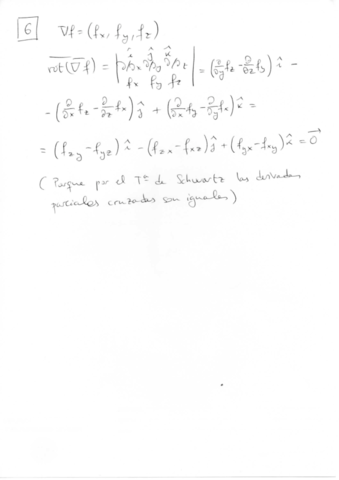 6 ∇f = (fx, fy, fz)
rot(∇f) = | î ĵ k̂ ; ∂/∂x ∂/∂y ∂/∂z ; fx fy fz | = (∂/∂y fz - ∂/∂z fy) î -
- (∂/∂x fz - ∂/∂z fx) ĵ + (∂/∂x fy - ∂/∂y fx) k̂ =
= (fzy - fyz) î - (fzx - fxz) ĵ + (fyx - fxy) k̂ = 0⃗
(Porque por el Tª de Schwartz las derivadas
parciales cruzadas son iguales)